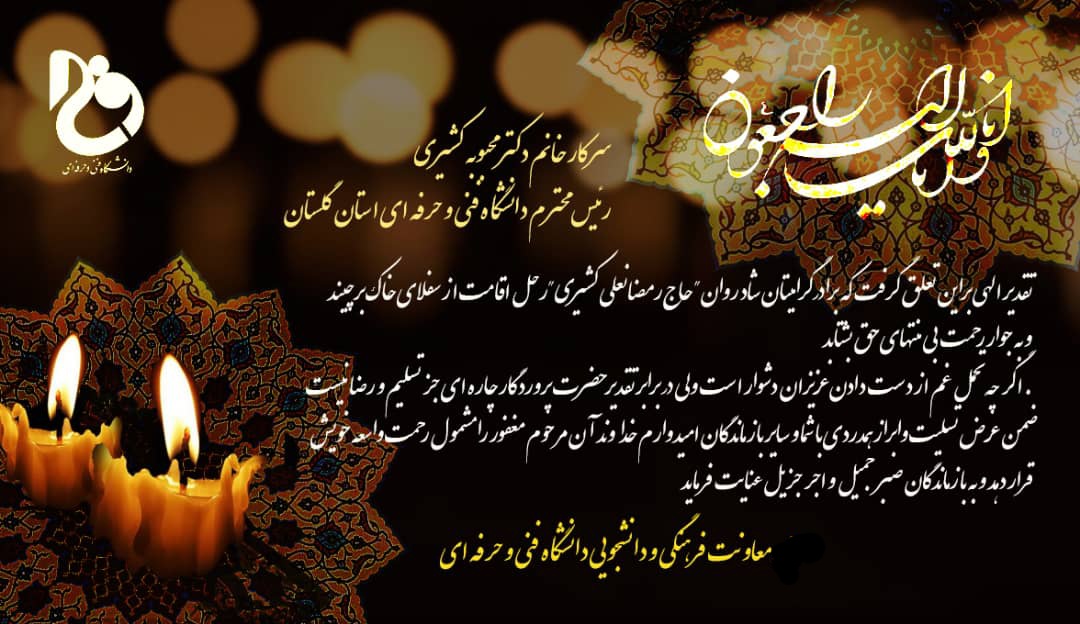 انا لله و انا الیه راجعون
دانشگاه فنی و حرفه ای
سرکار خانم دکتر محبوبه کشیری
رئیس محترم دانشگاه فنی و حرفه ای استان گلستان
تقدیر الهی بر این تعلق گرفت که برادر گرامیتان شادروان "حاج رمضانعلی کشیری" رحل اقامت از سفلای خاک برچیند
و به جوار رحمت بی منتهای حق بشتابد
. اگر چه تحمل غم از دست دادن عزیزان دشوار است ولی در برابر تقدیر حضرت پروردگار چاره ای جز تسلیم و رضا نیست
ضمن عرض تسلیت و ابراز همدردی با شما و سایر بازماندگان امیدوارم خداوند آن مرحوم مغفور را مشمول رحمت واسعه خویش
قرار دهد و به بازماندگان صبر جمیل و اجر جزیل عنایت فرماید
معاونت فرهنگی و دانشجویی دانشگاه فنی و حرفه ای